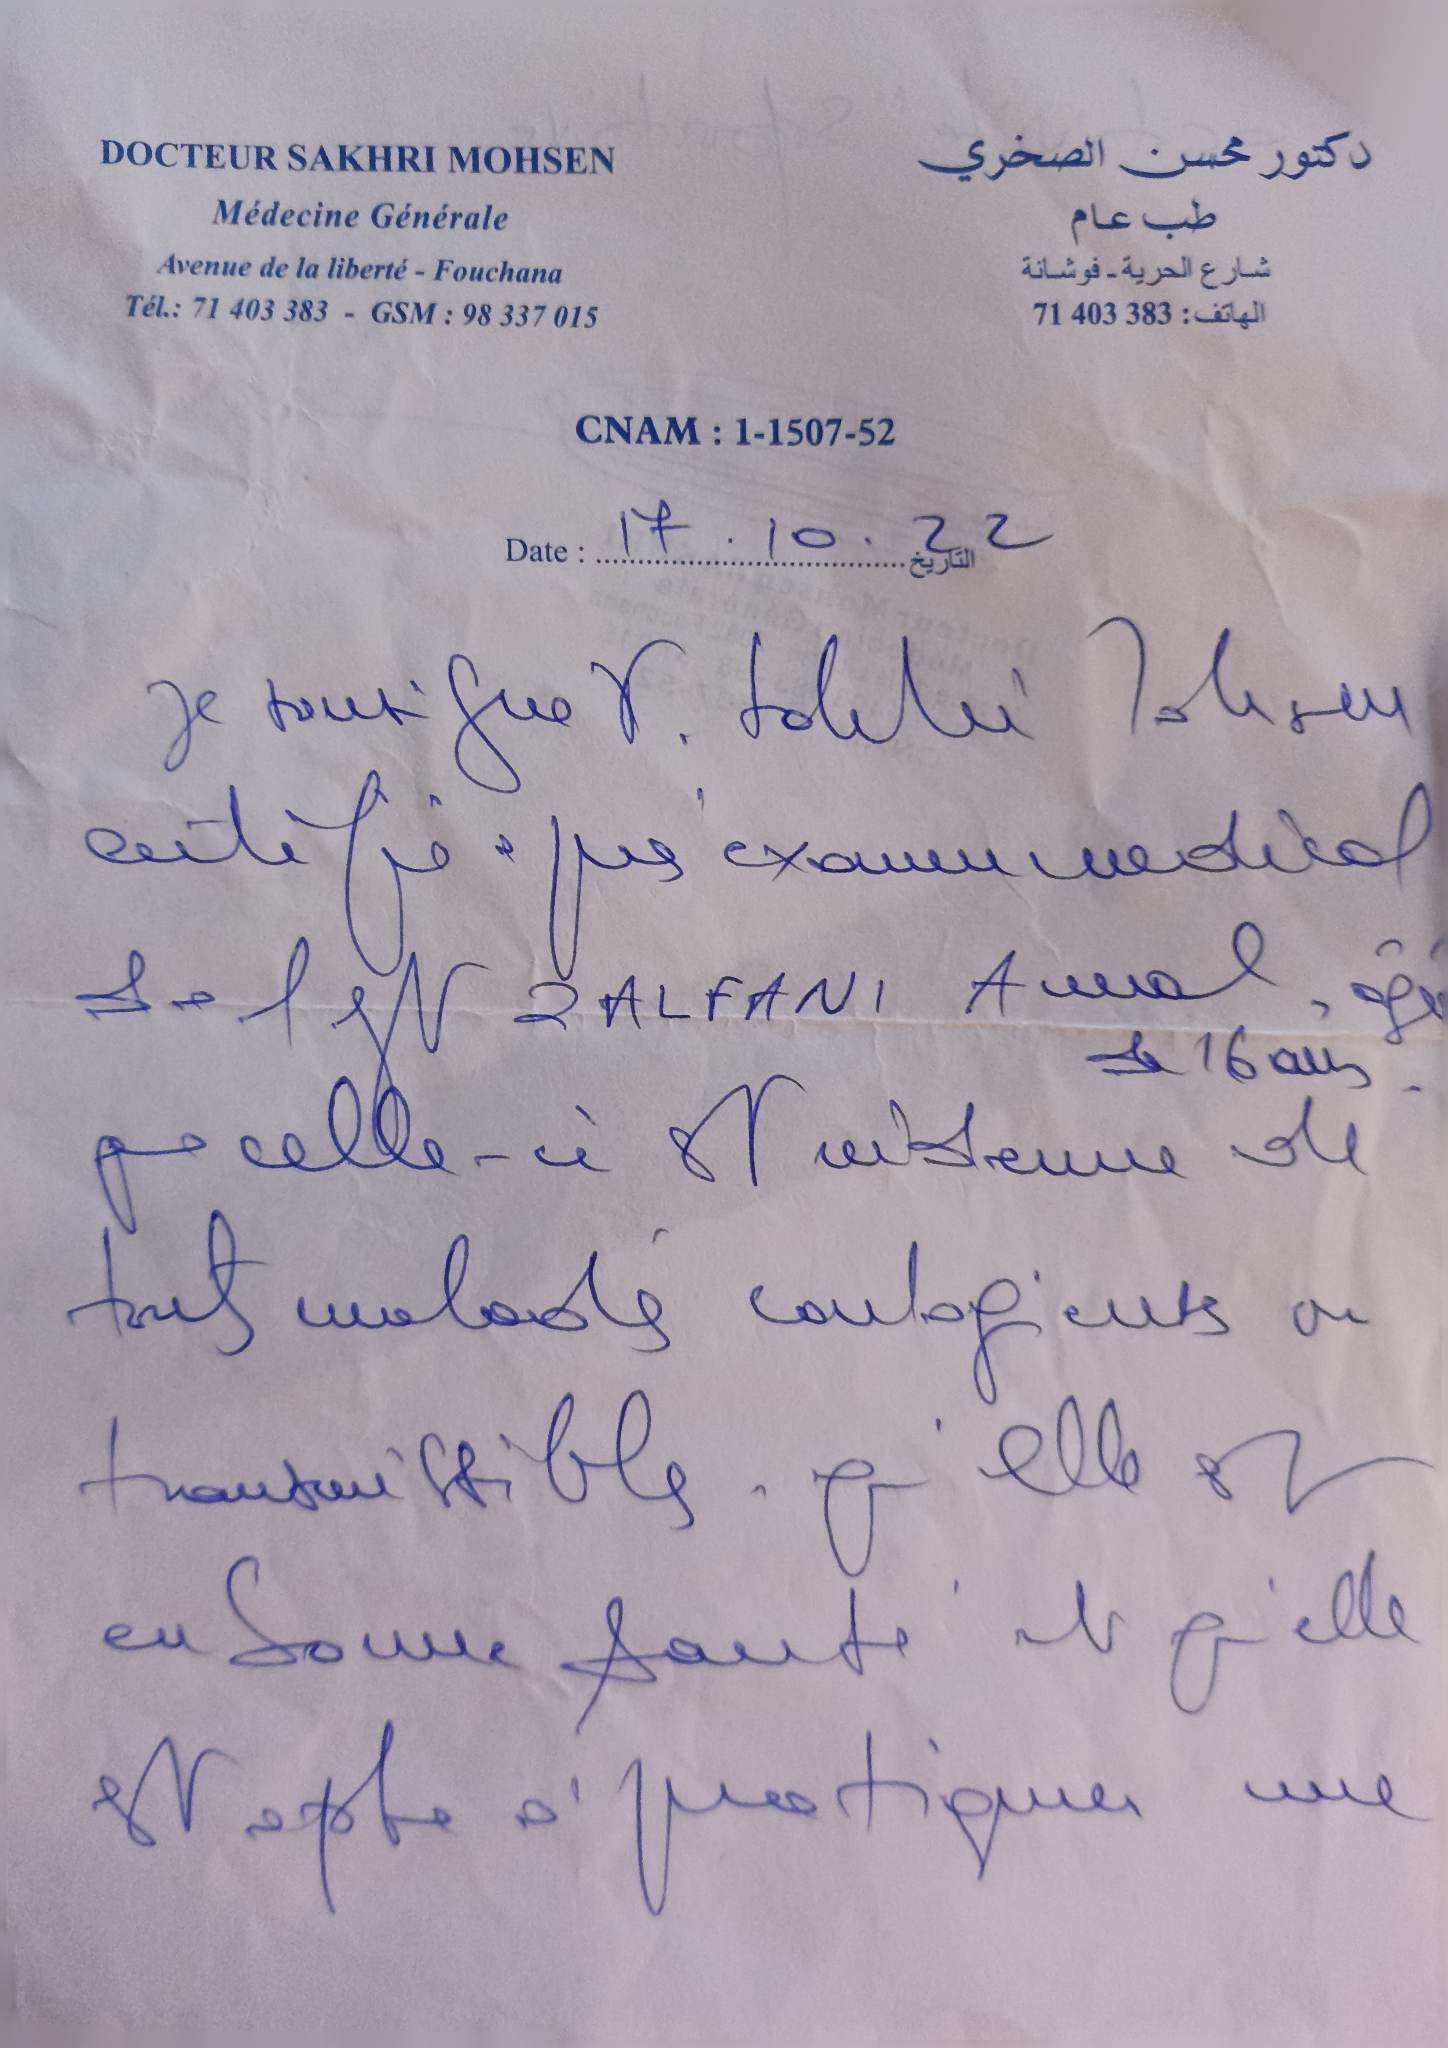 DOCTEUR SAKHRI MOHSEN
Médecine Générale
Avenue de la liberté - Fouchana
Tél.: 71 403 383 - GSM : 98 337 015
دكتور محسن الصخري
طب عام
شارع الحرية - فوشانة
الهاتف: 71 403 383
CNAM : 1-1507-52
Date : 17.10.22 التاريخ
Je soussigné Dr. Sakhri Mohsen
certifie après examen médical
de l'enft ZALFANI Amal, âgée
de 16 ans.
que celle-ci est indemne de
toutes maladies contagieuses ou
transmissibles. qu'elle est
en bonne santé et qu'elle
est apte à pratiquer une